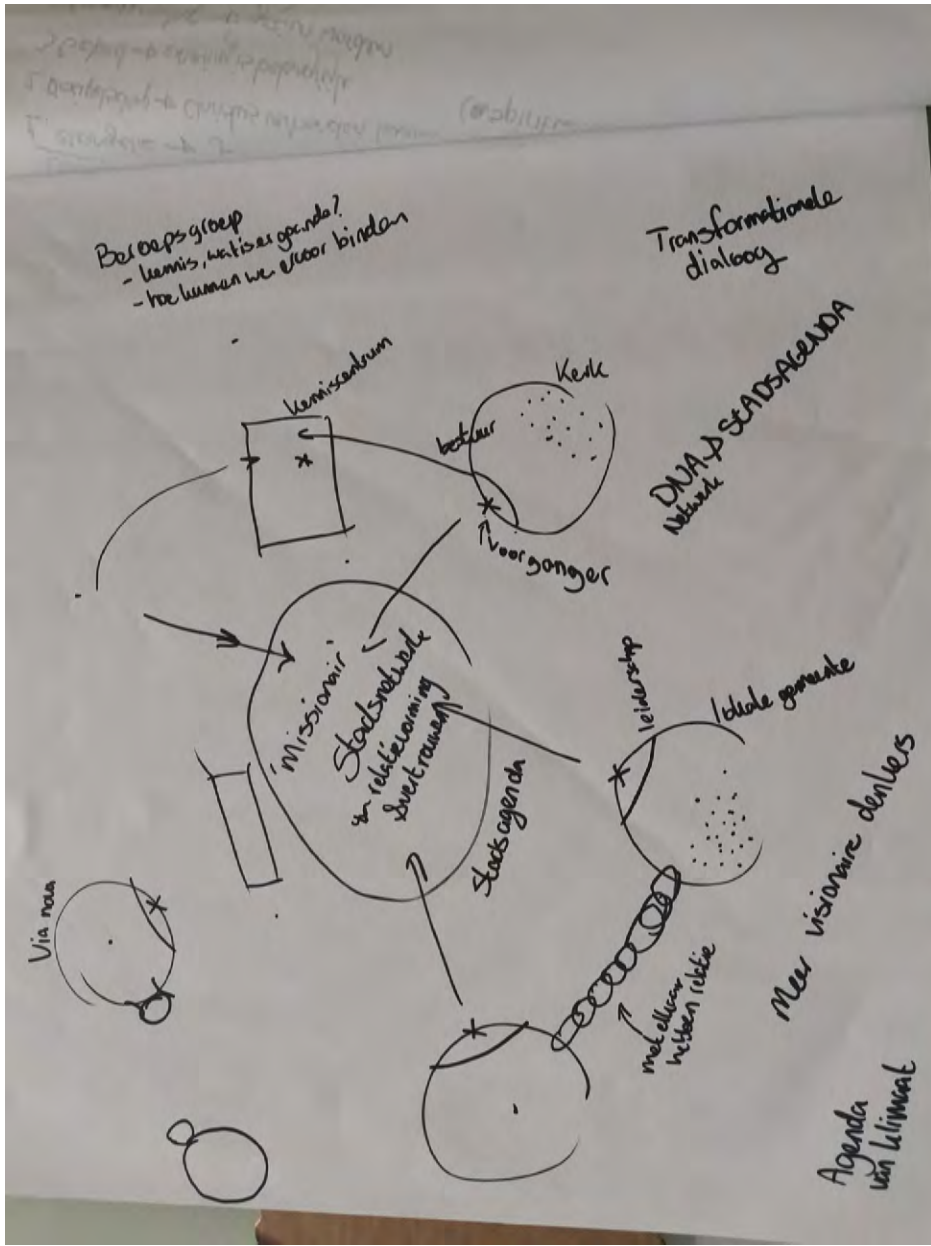 Beroepsgroep
- kennis, wat is er gaande?
- hoe kunnen we ervoor binden
Transformationele
dialoog
kenniscentrum
Kerk
bestuur
voorganger
DNA & STADSAGENDA
Netwerk
'Missionair'
Stadsnetwerk
relatievorming
& vertrouwen
Stadsagenda
leiderschap
lokale gemeente
Via nova
met elkaar
hebben relatie
Meer visionaire denkers
Agenda
van klimaat